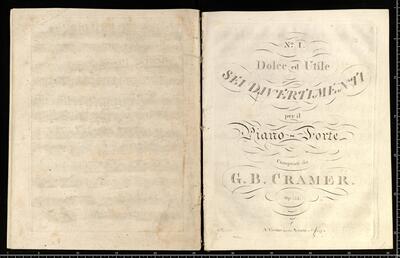 No. 1.
Dolce ed Utile
SEI DIVERTIMENTI
per il
Piano-Forte
Composti da
G. B. CRAMER.
Op.